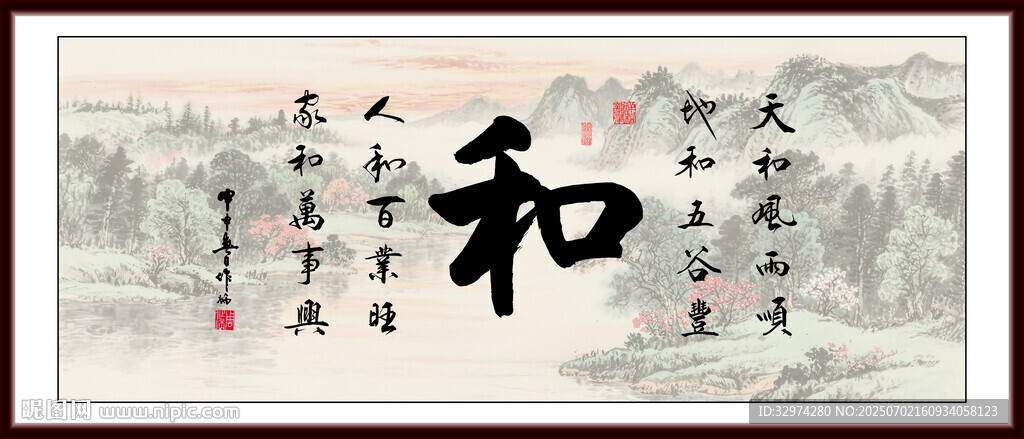 天和風雨順
地和五谷豐
和
人和百業旺
家和萬事興
昵图网 www.nipic.com
ID:32974280 NO:20250702160934058123